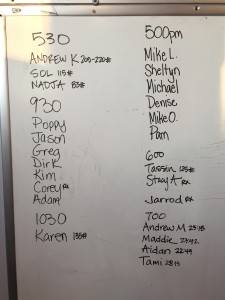 530
ANDREW K 205-220#
SOL 115#
NADJA 83#
930
Poppy
Jason
Greg
Dirk
Kim
Corey RX
Adam
1030
Karen 135#
500pm
Mike L.
Sheltyn
Michael
Denise
Mike O.
Pam
600
Tassin 125#
Stacy A RX
Jarrod RX
700
Andrew M 23:45
Maddie 23:42
Aidan 22:49
Tami 28:15